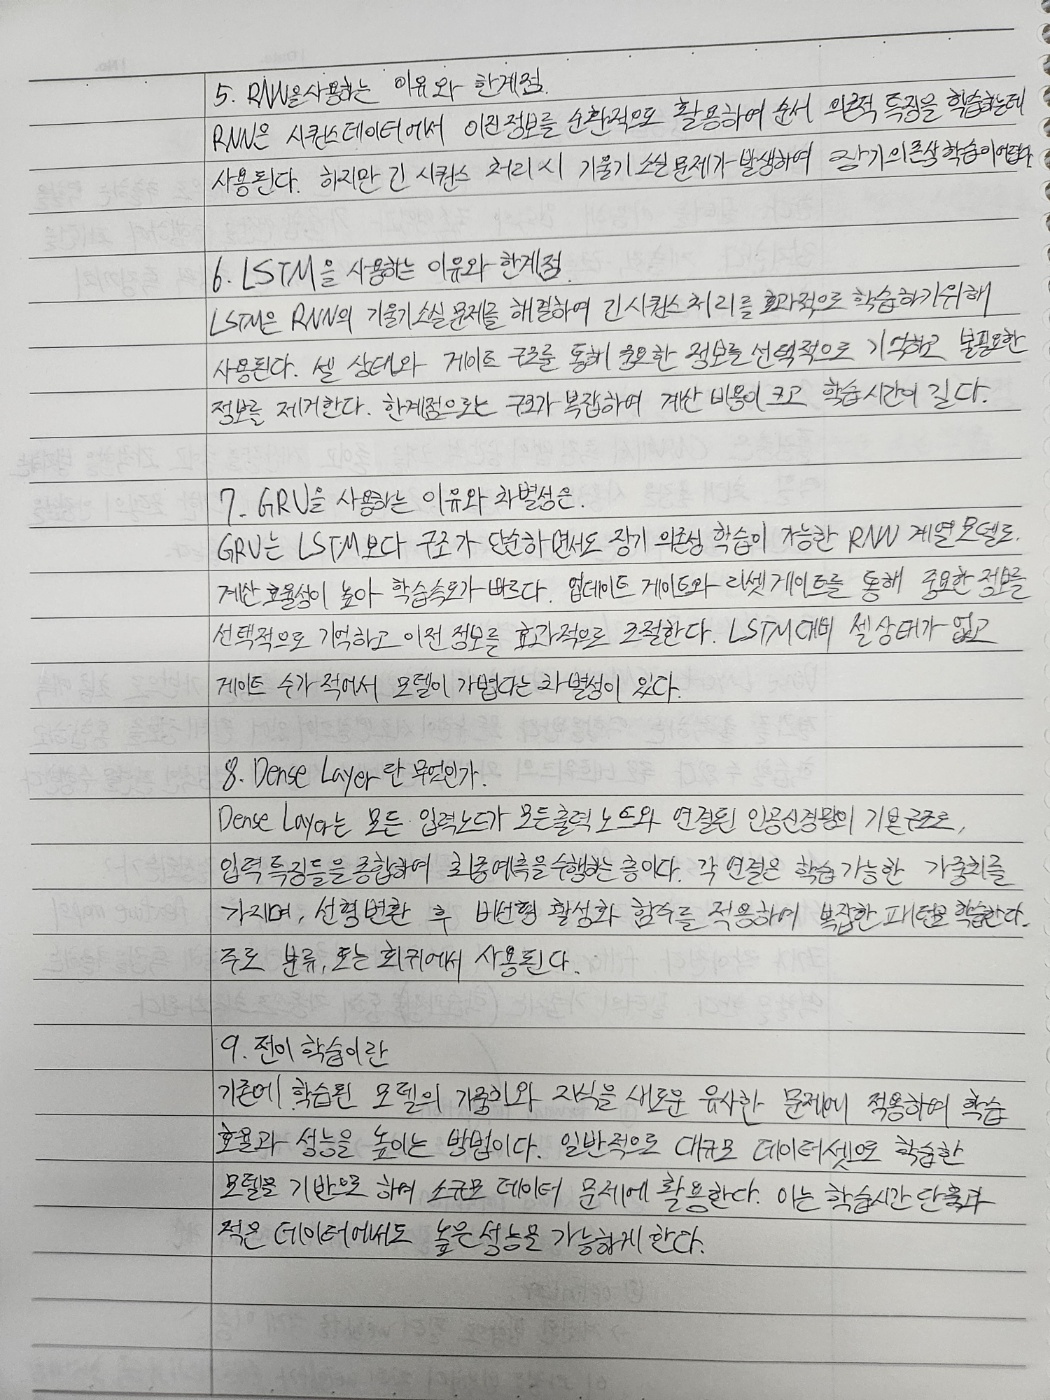 5. RNN을 사용하는 이유와 한계점.
RNN은 시퀀스데이터에서 이전정보를 순환적으로 활용하여 순서 의존적 특징을 학습하는데
사용된다. 하지만 긴 시퀀스 처리시 기울기소실문제가 발생하여 장기의존성학습이어렵다
6. LSTM을 사용하는 이유와 한계점.
LSTM은 RNN의 기울기소실문제를 해결하여 긴시퀀스처리를 효과적으로 학습하기위해
사용된다. 셀 상태와 게이트 구조를 통해 중요한 정보를 선택적으로 기억하고 불필요한
정보를 제거한다. 한계점으로는 구조가 복잡하여 계산 비용이 크고 학습시간이 길다.
7. GRU을 사용하는 이유와 차별성은.
GRU는 LSTM보다 구조가 단순하면서도 장기 의존성 학습이 가능한 RNN 계열모델로.
계산효율성이 높아 학습속도가 빠르다. 업데이트 게이트와 리셋게이트를 통해 중요한 정보를
선택적으로 기억하고 이전 정보를 효과적으로 조절한다. LSTM대비 셀상태가 없고
게이트 수가 적어서 모델이 가볍다는 차별성이 있다.
8. Dense Layer란 무엇인가.
Dense Layer는 모든 입력노드가 모든출력노드와 연결된 인공신경망의 기본구조로,
입력 특징들을 종합하여 최종예측을수행하는 층이다. 각 연결은 학습가능한 가중치를
가지며, 선형변환 후 비선형 활성화 함수를 적용하여 복잡한 패턴을 학습한다.
주로 분류, 또는 회귀에서 사용된다.
9. 전이 학습이란
기존에 학습된 모델의 가중치와 지식을 새로운 유사한 문제에 적용하여 학습
효율과 성능을 높이는 방법이다. 일반적으로 대규모 데이터셋으로 학습한
모델을 기반으로 하여 소규모 데이터 문제에 활용한다. 이는 학습시간 단축과
적은 데이터에서도 높은성능을 가능하게 한다.